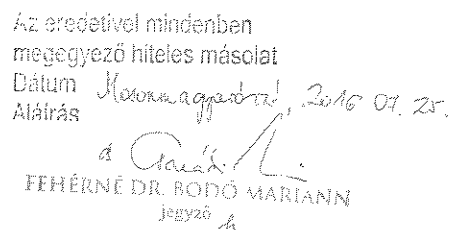 Az eredetivel mindenben
megegyező hiteles másolat
Dátum 2016 07. 25.
Aláírás
FEHÉRNÉ DR. BODÓ MARIANN
jegyző